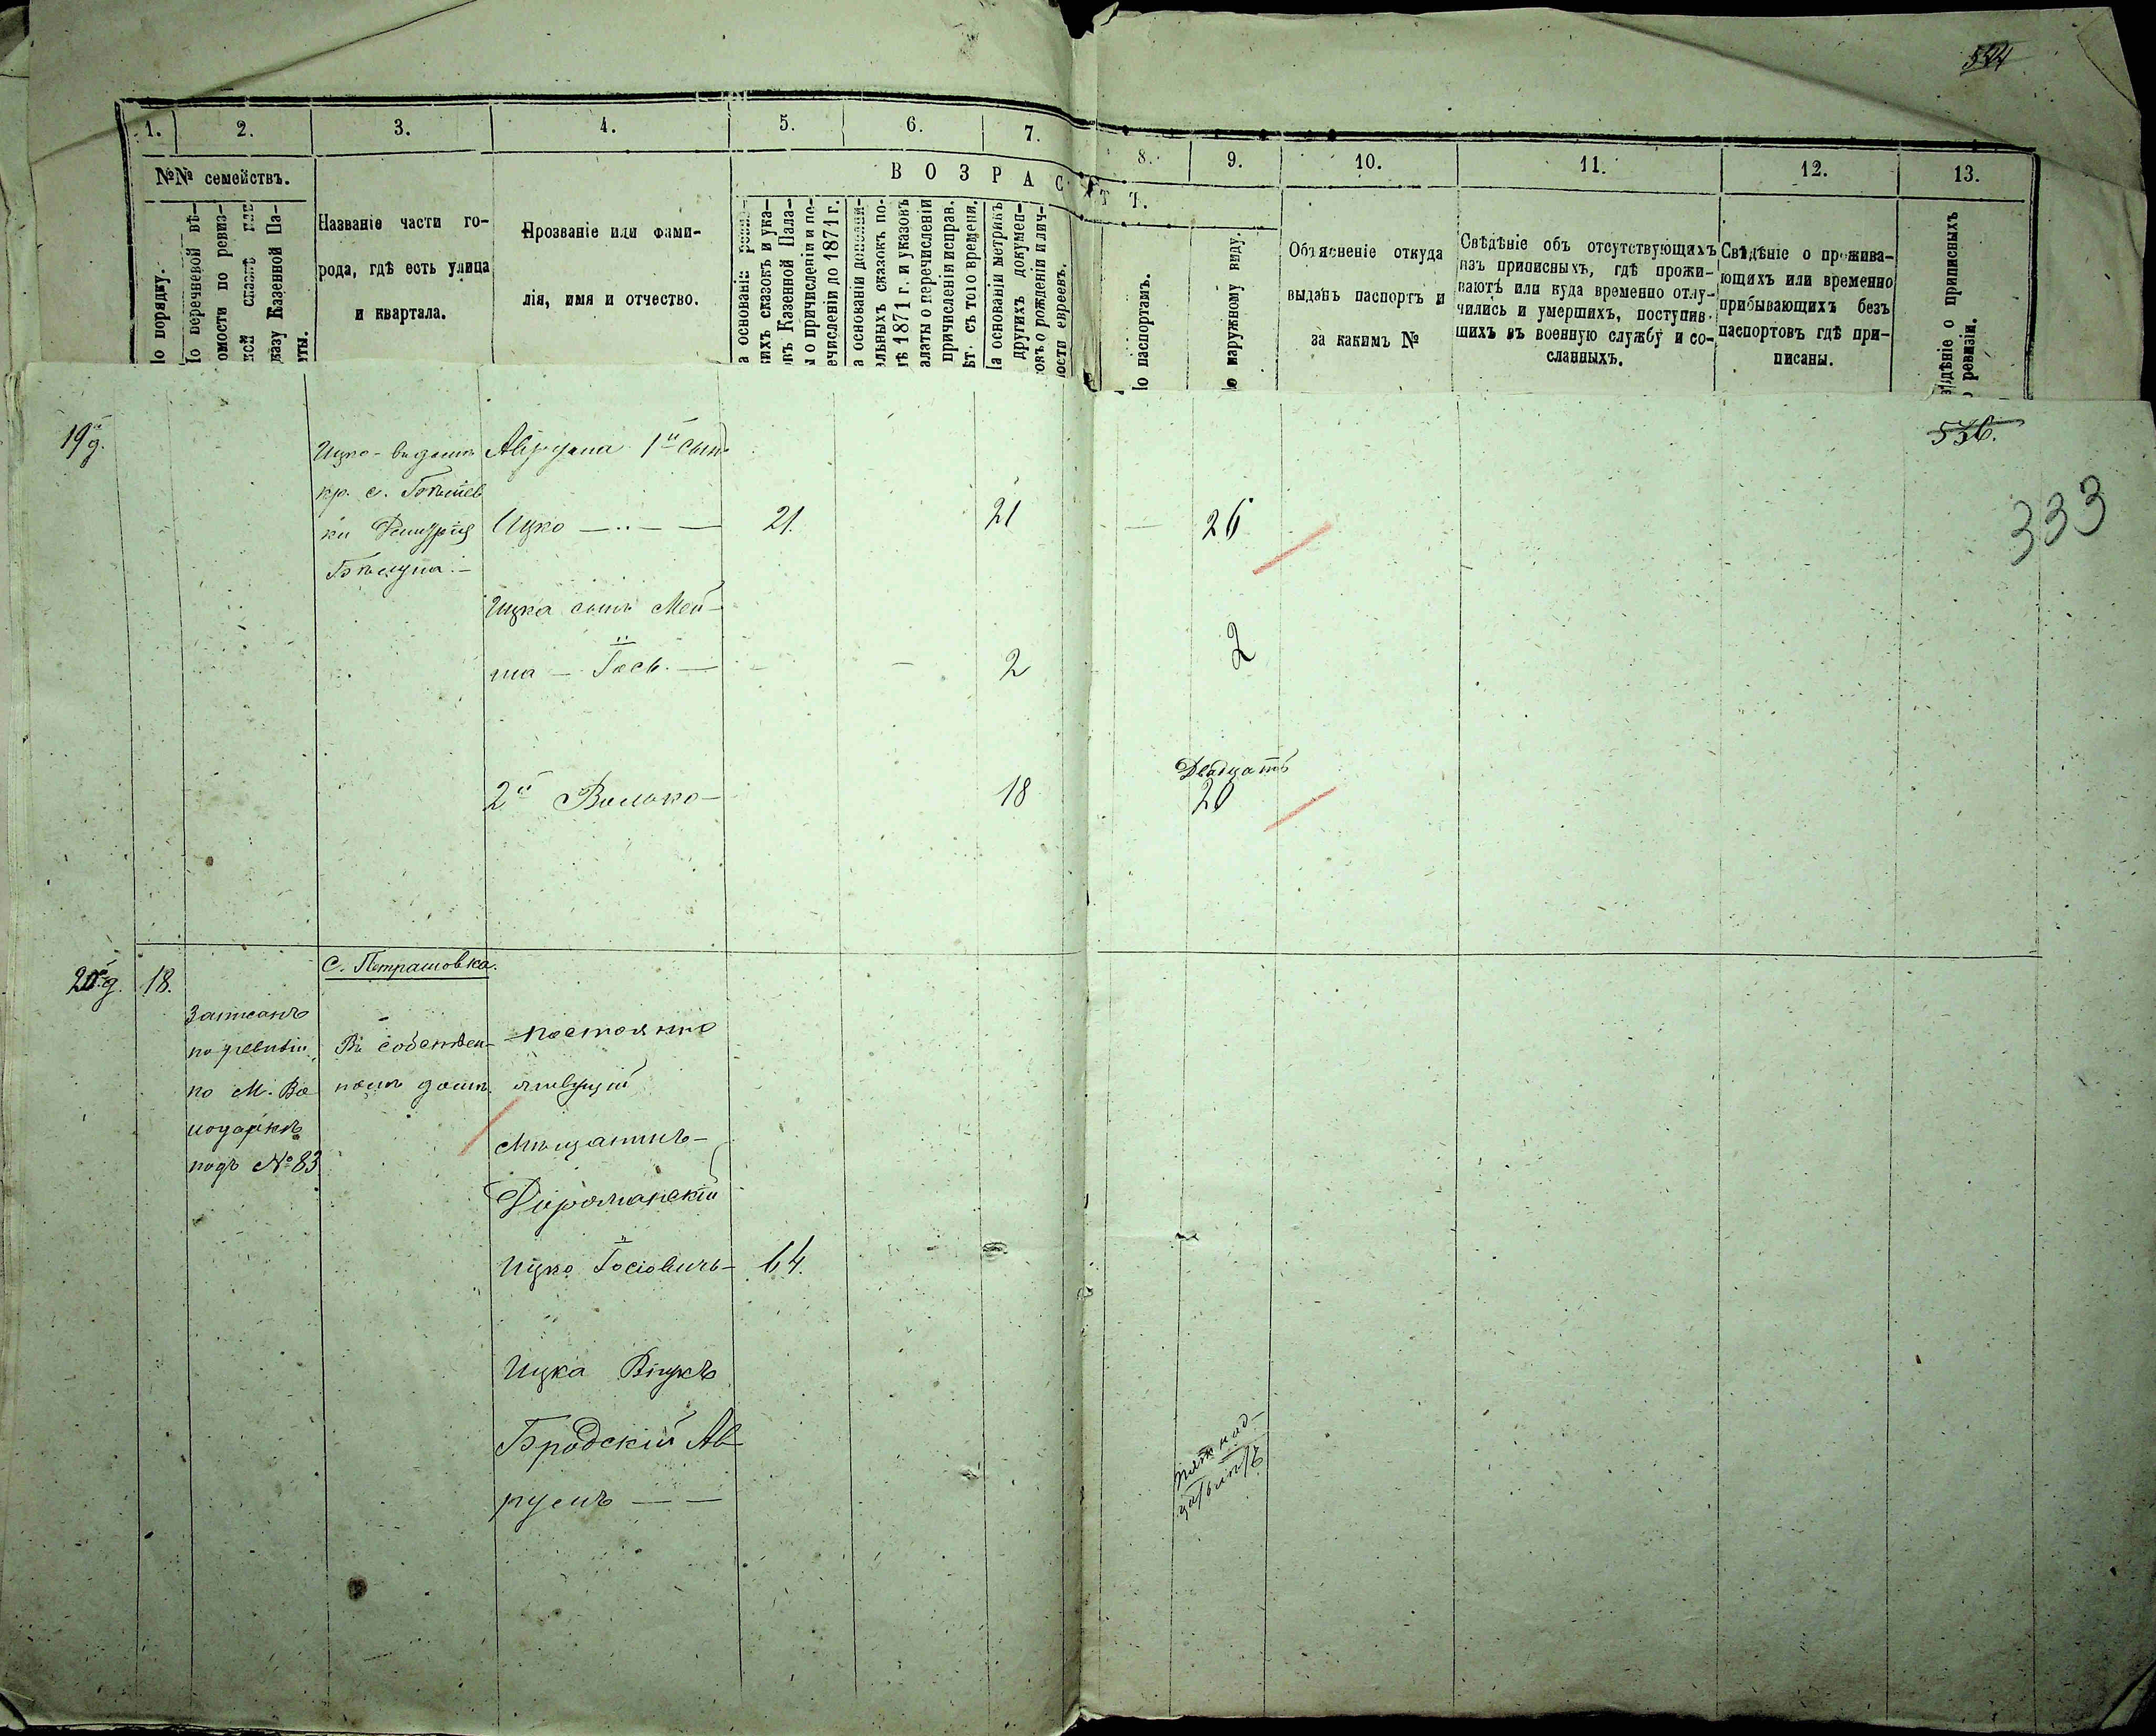 544
1. 2. 3. 4. 5. 6. 7. 8. 9. 10. 11. 12. 13.
№№ семействъ.
В О З Р А С Т Ъ.
По порядку.
По перечневой вѣ-
домости по ревиз-
Казенной Па-
Названіе части го-
рода, гдѣ есть улица
и квартала.
Прозваніе или фами-
лія, имя и отчество.
На основаніи
скихъ сказокъ и ука-
зовъ Казенной Пала-
ты о причисленіи и пе-
речисленіи до 1871 г.
На основаніи
тельныхъ сказокъ по-
слѣ 1871 г. и указовъ
Палаты о перечисленіи
причисленіи исправ.
лѣт. съ того времени.
На основаніи метрикъ
другихъ докумен-
товъ о рожденіи и лич-
ности евреевъ.
По паспортамъ.
По наружному виду.
Объясненіе откуда
выданъ паспортъ и
за какимъ №
Свѣдѣніе объ отсутствующихъ
изъ приписныхъ, гдѣ прожи-
ваютъ или куда временно отлу-
чились и умершихъ, поступив-
шихъ въ военную службу и со-
сланныхъ.
Свѣдѣніе о прожива-
ющихъ или временно
прибывающихъ безъ
паспортовъ гдѣ при-
писаны.
Свѣдѣніе о приписныхъ
ревизіи.
536.
333
19й д.
Ицко - въ домѣ
кр. с.
Ицко — 21. 21 — 26
Ицка сынъ Мой-
ша — Іось. — — — 2 2
2й Волько — 18 Двадцать 20
20й д. 18.
С. Петрашовка.
Записанъ
по ревизіи
по М. Во
лодаркѣ
подъ № 83
Въ собствен-
номъ домѣ.
постоянно
живущій
Мѣщанинъ —
Ицко Іосіовичъ — 64.
Ицка Внукъ
Бродскій Ав-
румъ — —
пятнад-
цать лѣтъ